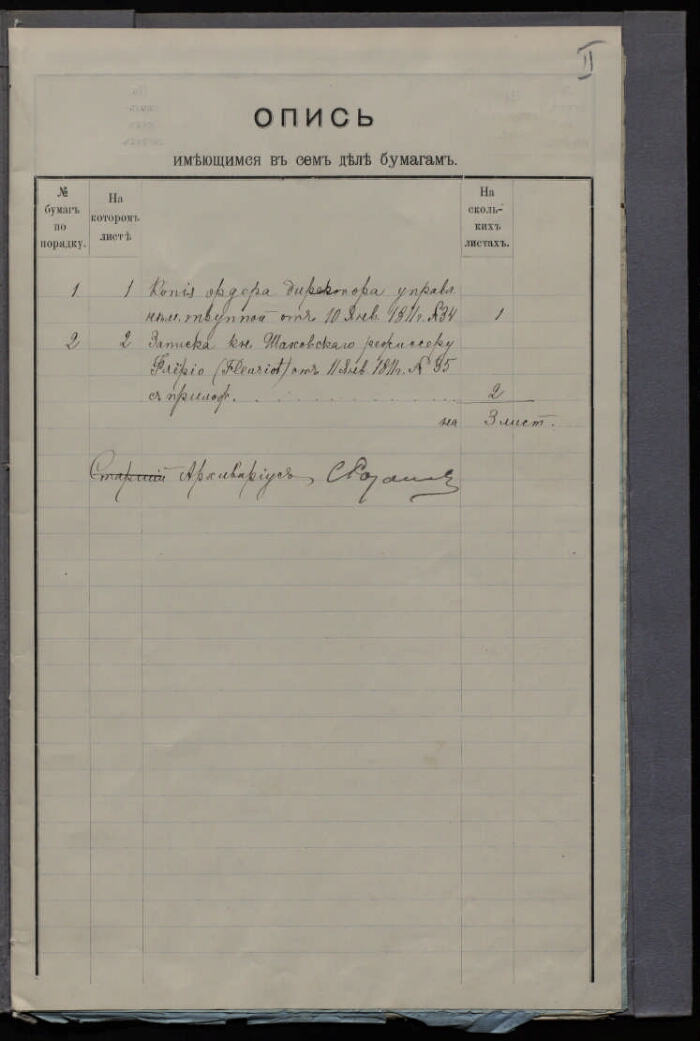 II
ОПИСЬ
имѣющимся въ семъ дѣлѣ бумагамъ.
№ бумагъ по порядку.
На которомъ листѣ
На сколькихъ листахъ.
1 1 Копія ордера директора управл.
нѣм. труппой отъ 10 Янв. 1811 г. №34 1
2 2 Записка кн. Шаховскаго режиссеру
Флёріо (Fleuriot) отъ 11 Янв 1811 г. № 35
съ прилож. . . . . . . . . . . 2
на 3 лист.
Старшій Архиваріусъ